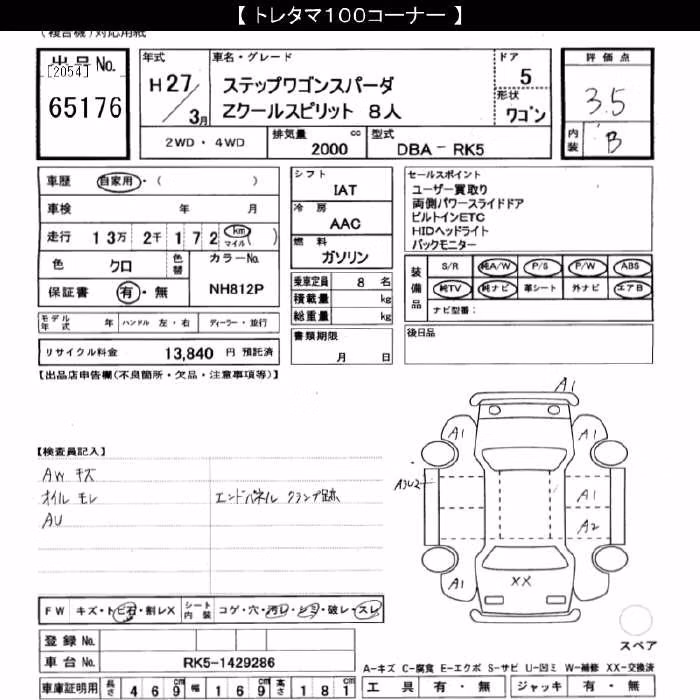 【 トレタマ100コーナー 】
(複合機)対応用紙
出品No.
[2054]
65176
年式
H27/3月
車名・グレード
ステップワゴンスパーダ
Zクールスピリット 8人
ドア
5
形状
ワゴン
評価点
3.5
内装
B
2WD・4WD
排気量 2000 cc
型式 DBA-RK5
車歴 自家用・( )
車検 年 月
走行 13万2千172 km マイル ( )
色 クロ 色替
カラーNo. NH812P
保証書 有・無
シフト
IAT
冷房
AAC
燃料
ガソリン
乗車定員 8 名
積載量 kg
総重量 kg
セールスポイント
ユーザー買取り
両側パワースライドドア
ビルトインETC
HIDヘッドライト
バックモニター
装備品
S/R 純A/W P/S P/W ABS
純TV 純ナビ 革シート 外ナビ エアB
ナビ型番:
モデル年式 年 ハンドル 左・右 ディーラー・並行
書類期限
月 日
後日品
リサイクル料金 13,840 円 預託済
【出品店申告欄(不良箇所・欠品・注意事項等)】
【検査員記入】
AW キズ
オイル モレ
エンドパネル クランプ跡
AU
A1
A1
A1
A3U2
A1
A2
A1
A1
XX
FW キズ・トビ石・割レX
シート内装 コゲ・穴・汚レ・シミ・破レ・スレ
登録No.
車台No. RK5-1429286
スペア
A-キズ C-腐食 E-エクボ S-サビ U-凹ミ W-補修 XX-交換済
車庫証明用 長さ 469cm 幅 169cm 高さ 181cm
工具 有・無 ジャッキ 有・無